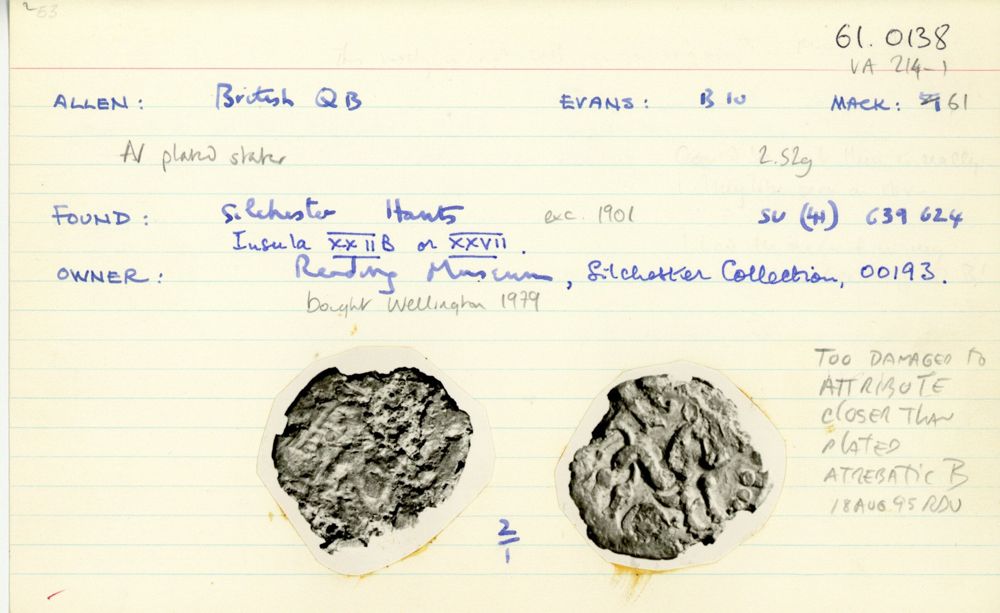 253
61.0138
VA 214-1
ALLEN: British QB EVANS: B 10 MACK: 61
AV plated stater 2.52g
FOUND: Silchester Hants exc. 1901 SU (41) 639 624
Insula XXIIB or XXVII.
OWNER: Reading Museum, Silchester Collection, 00193.
bought Wellington 1979
TOO DAMAGED to
ATTRIBUTE
CLOSER THAN
PLATED
ATREBATIC B
18 AUG 95 RDV
2/1